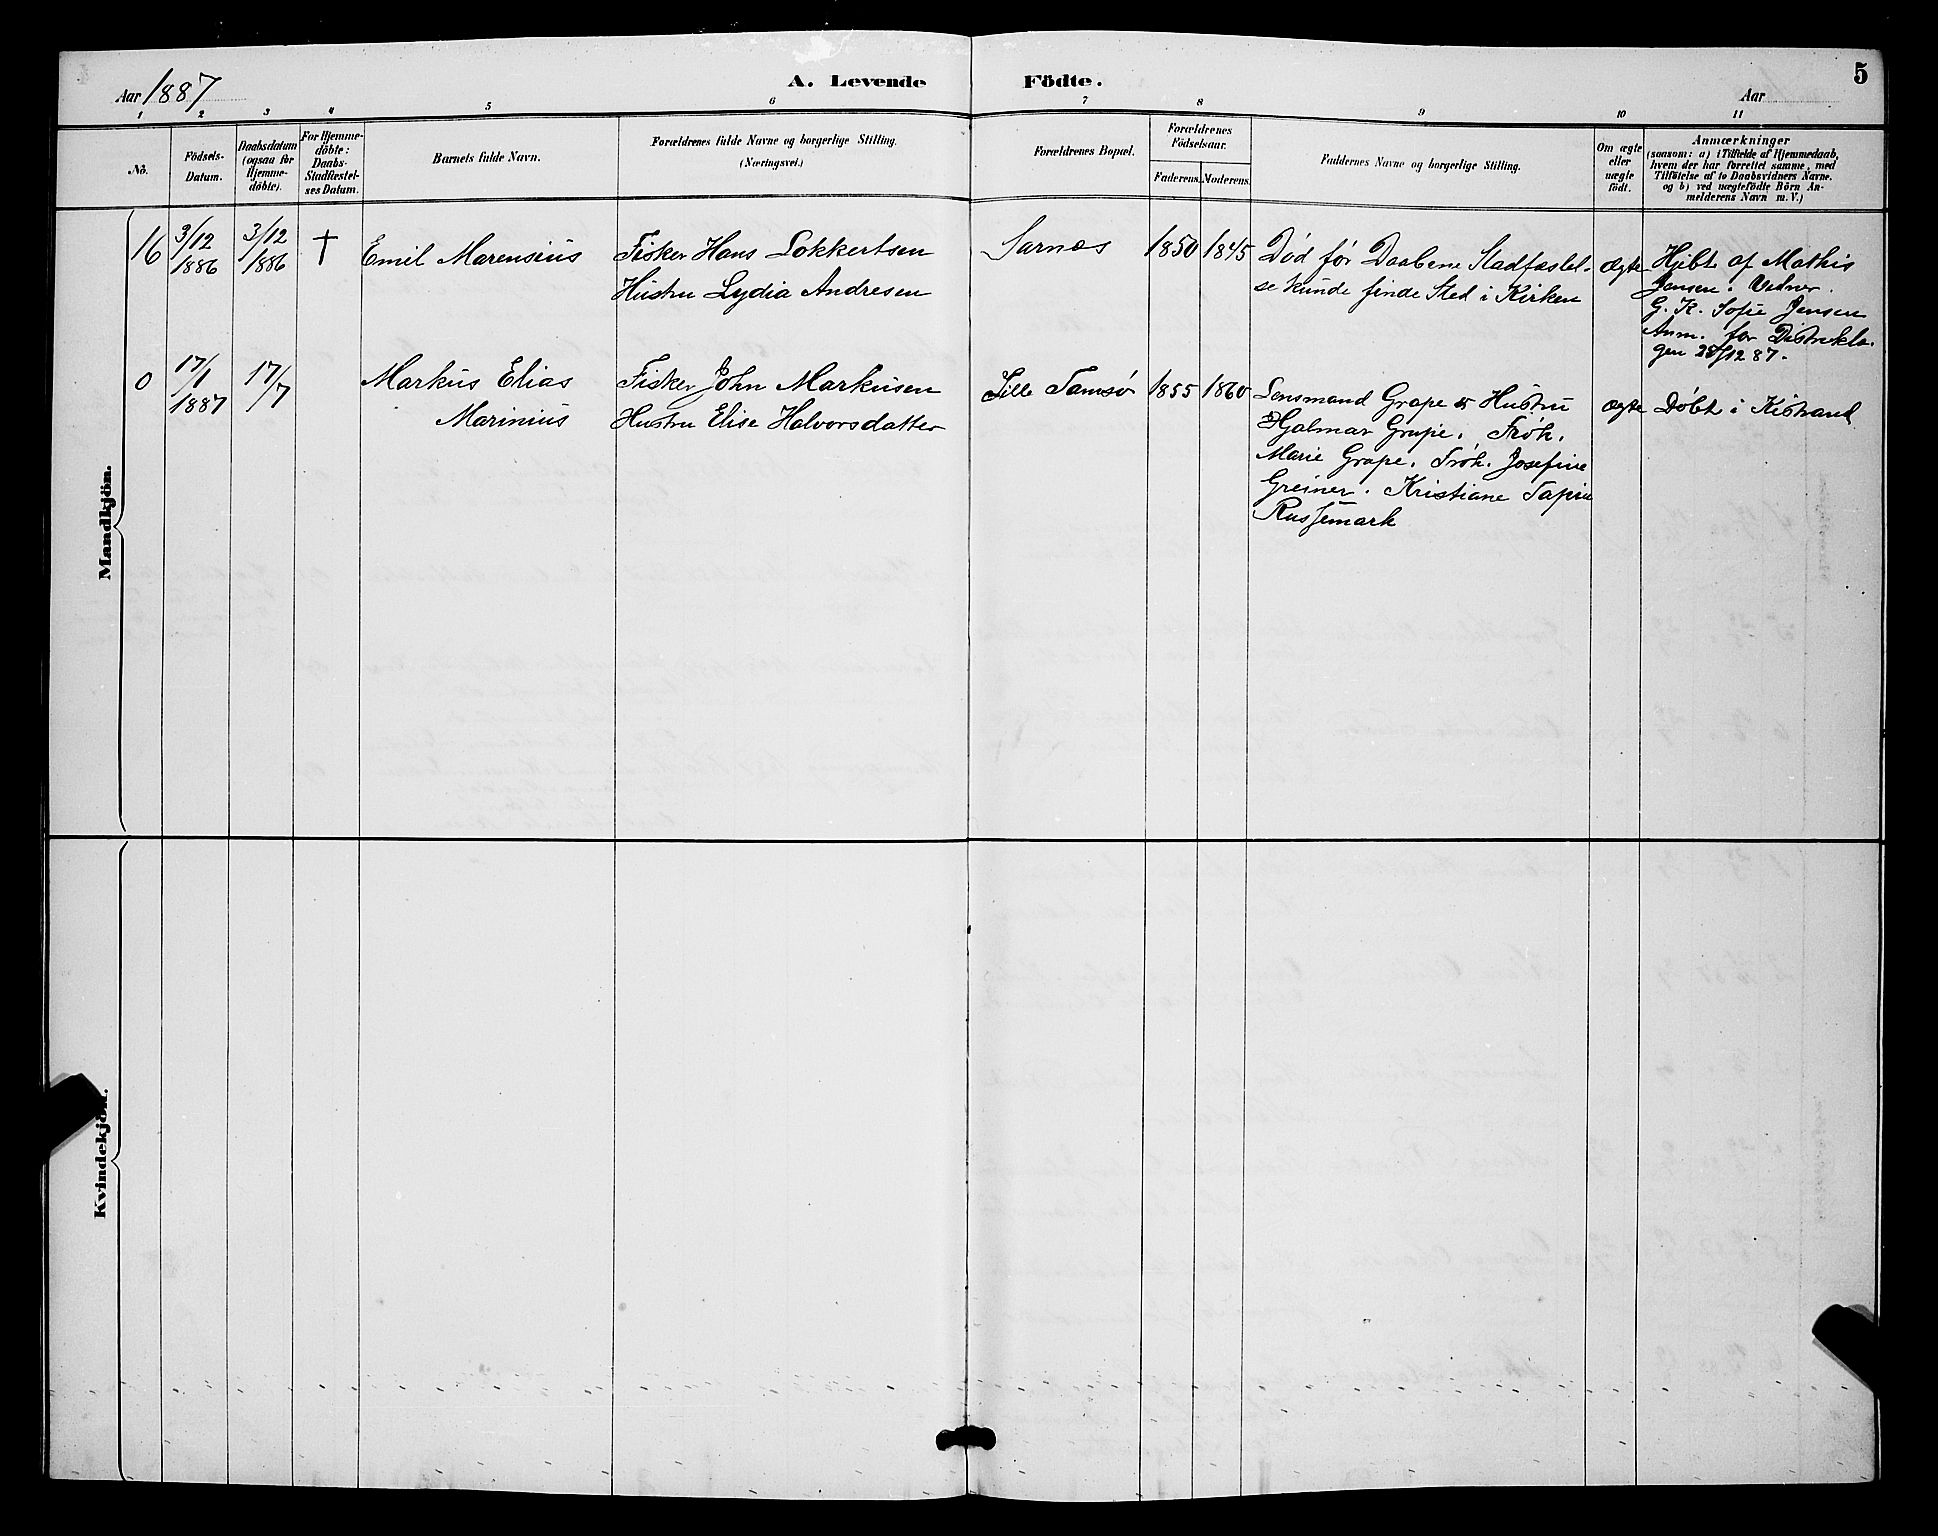 Aar 1887
A. Levende Födte.
5
Aar
1 2 3 4 5 6 7 8 9 10 11
No.
Födsels-
Datum.
Daabsdatum
(ogsaa for
Hjemme-
döbte).
For Hjemme-
döbte:
Daabs-
Stadfæstel-
ses Datum.
Barnets fulde Navn.
Forældrenes fulde Navne og borgerlige Stilling.
(Næringsvei.)
Forældrenes Bopæl.
Forældrenes
Födselsaar.
Faderens. Moderens.
Faddernes Navne og borgerlige Stilling.
Om ægte
eller
uægte
födt.
Anmærkninger
(saasom: a) i Tilfælde af Hjemmedaab,
hvem der har forrettet samme, med
Tilföielse af to Daabsvidners Navne.
og b) ved uægtefödte Börn An-
melderens Navn m. V.)
Mandkjön.
16
3/12
1886
3/12
1886
†
Emil Marensius
Fisker Hans Lokkertsen
Hustru Lydia Andresen
Sarnæs
1850
1845
Død før Daabens Stadfæstel-
se kunde finde Sted i Kirken
ægte
Hjbt af Mathis
Jensen. Vidner.
G. K. Sofie Jensen
Anm. for Distrikla-
gen 28/12 87.
0
17/1
1887
17/7
Markus Elias
Marinius
Fisker John Markusen
Hustru Elise Halvorsdatter
Lille Tamsø
1855
1860
Lensmand Grape og Hustru
Hjalmar Grape. Frøk.
Marie Grape. Frøk. Josefine
Greiner. Kristiane
Russemark
ægte
Døbt i Kistrand
Kvindekjön.